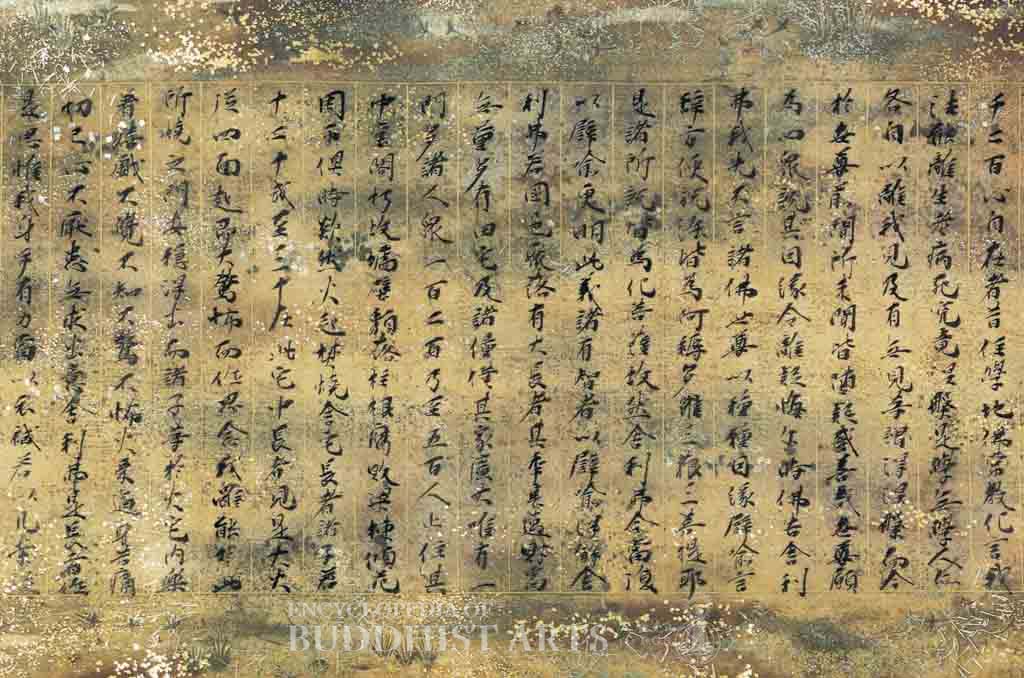 千二百心自在者昔住學地佛常教化言我
法能離生老病死究竟涅槃是學无學人亦
各自以離我見及有无見等謂得涅槃而今
於世尊前聞所未聞皆墮疑惑善哉世尊願
為四衆說其因緣令離疑悔尒時佛告舍利
弗我先不言諸佛世尊以種種因緣譬喻言
辭方便說法皆為阿耨多羅三藐三菩提耶
是諸所說皆為化菩薩故然舍利弗今當復
以譬喻更明此義諸有智者以譬喻得解舍
利弗若國邑聚落有大長者其年衰邁財富
无量多有田宅及諸僮僕其家廣大唯有一
門多諸人衆一百二百乃至五百人止住其
中堂閣朽故墻壁頹落柱根腐敗梁棟傾危
周帀俱時歘然火起焚燒舍宅長者諸子若
十二十或至三十在此宅中長者見是大火
從四面起即大驚怖而作是念我雖能於此
所燒之門安穩得出而諸子等於火宅內樂
著嬉戲不覺不知不驚不怖火來逼身苦痛
切己心不厭患无求出意舍利弗是長者作
是思惟我身手有力當以衣裓若以几案從
ENCYCLOPEDIA OF
BUDDHIST ARTS